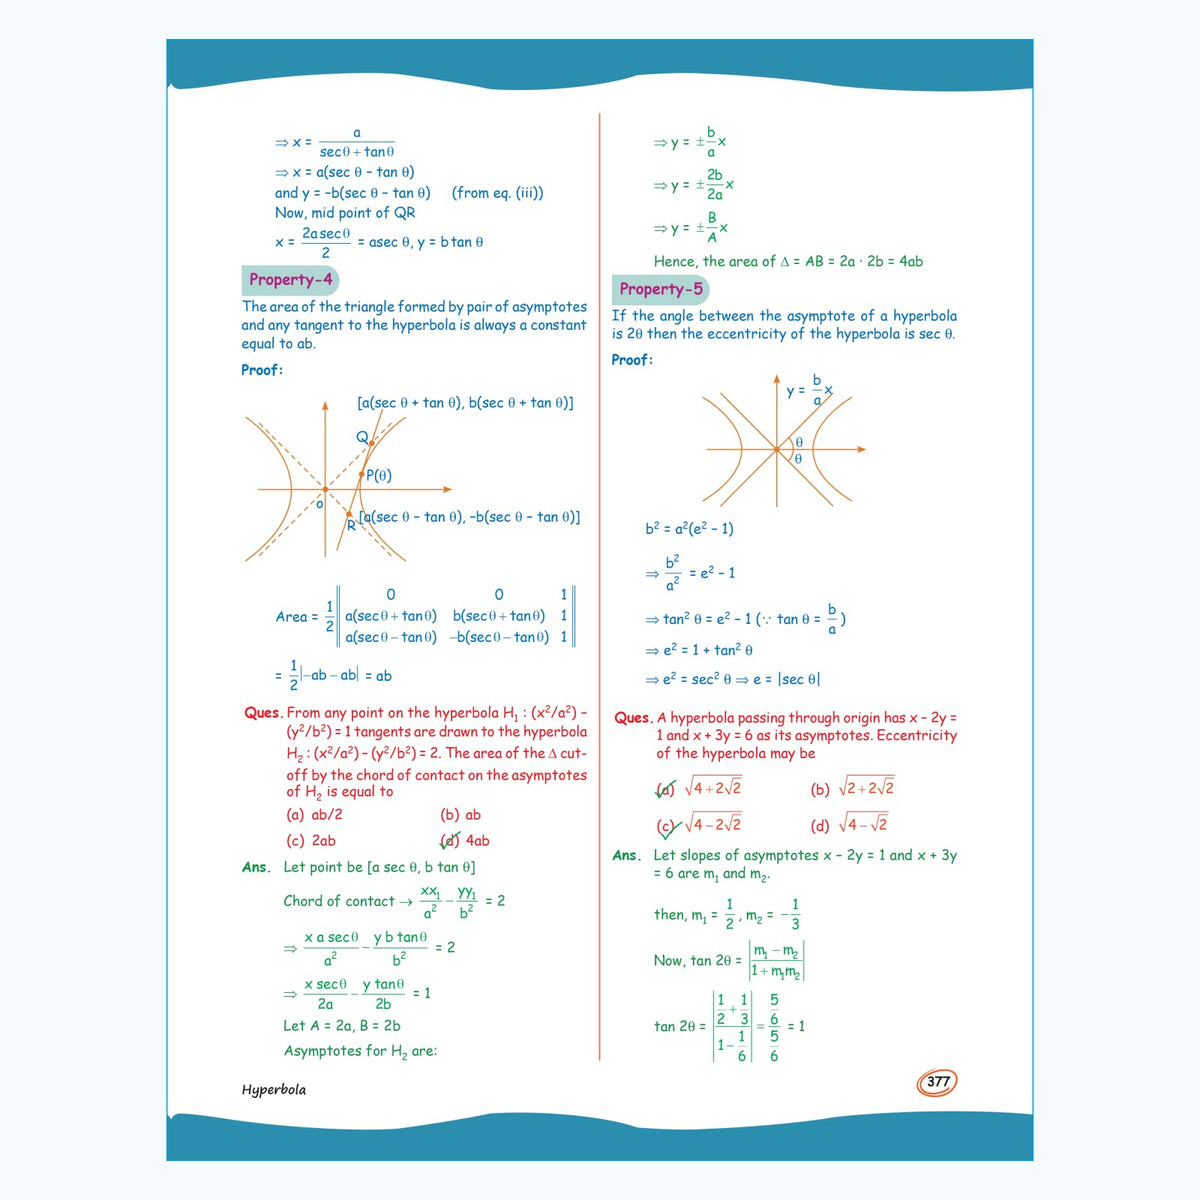 ⇒ x = a / (secθ + tanθ)
⇒ x = a(sec θ – tan θ)
and y = –b(sec θ – tan θ) (from eq. (iii))
Now, mid point of QR
x = 2a sec θ / 2 = asec θ, y = b tan θ
Property-4
The area of the triangle formed by pair of asymptotes
and any tangent to the hyperbola is always a constant
equal to ab.
Proof:
[a(sec θ + tan θ), b(sec θ + tan θ)]
Q
P(θ)
o
R [a(sec θ – tan θ), –b(sec θ – tan θ)]
Area = 1/2 || 0 0 1
a(secθ + tanθ) b(secθ + tanθ) 1
a(secθ – tanθ) –b(secθ – tanθ) 1 ||
= 1/2 |–ab – ab| = ab
Ques. From any point on the hyperbola H₁ : (x²/a²) –
(y²/b²) = 1 tangents are drawn to the hyperbola
H₂ : (x²/a²) – (y²/b²) = 2. The area of the Δ cut-
off by the chord of contact on the asymptotes
of H₂ is equal to
(a) ab/2 (b) ab
(c) 2ab (d) 4ab
Ans. Let point be [a sec θ, b tan θ]
Chord of contact → xx₁/a² – yy₁/b² = 2
⇒ x a secθ/a² – y b tanθ/b² = 2
⇒ x secθ/2a – y tanθ/2b = 1
Let A = 2a, B = 2b
Asymptotes for H₂ are:
⇒ y = ± b/a x
⇒ y = ± 2b/2a x
⇒ y = ± B/A x
Hence, the area of Δ = AB = 2a · 2b = 4ab
Property-5
If the angle between the asymptote of a hyperbola
is 2θ then the eccentricity of the hyperbola is sec θ.
Proof:
y = b/a x
θ
θ
b² = a²(e² – 1)
⇒ b²/a² = e² – 1
⇒ tan² θ = e² – 1 (∵ tan θ = b/a)
⇒ e² = 1 + tan² θ
⇒ e² = sec² θ ⇒ e = |sec θ|
Ques. A hyperbola passing through origin has x – 2y =
1 and x + 3y = 6 as its asymptotes. Eccentricity
of the hyperbola may be
(a) √(4 + 2√2) (b) √(2 + 2√2)
(c) √(4 – 2√2) (d) √(4 – √2)
Ans. Let slopes of asymptotes x – 2y = 1 and x + 3y
= 6 are m₁ and m₂.
then, m₁ = 1/2, m₂ = –1/3
Now, tan 2θ = |(m₁ – m₂)/(1 + m₁m₂)|
tan 2θ = |(1/2 + 1/3)/(1 – 1/6)| = (5/6)/(5/6) = 1
Hyperbola
377